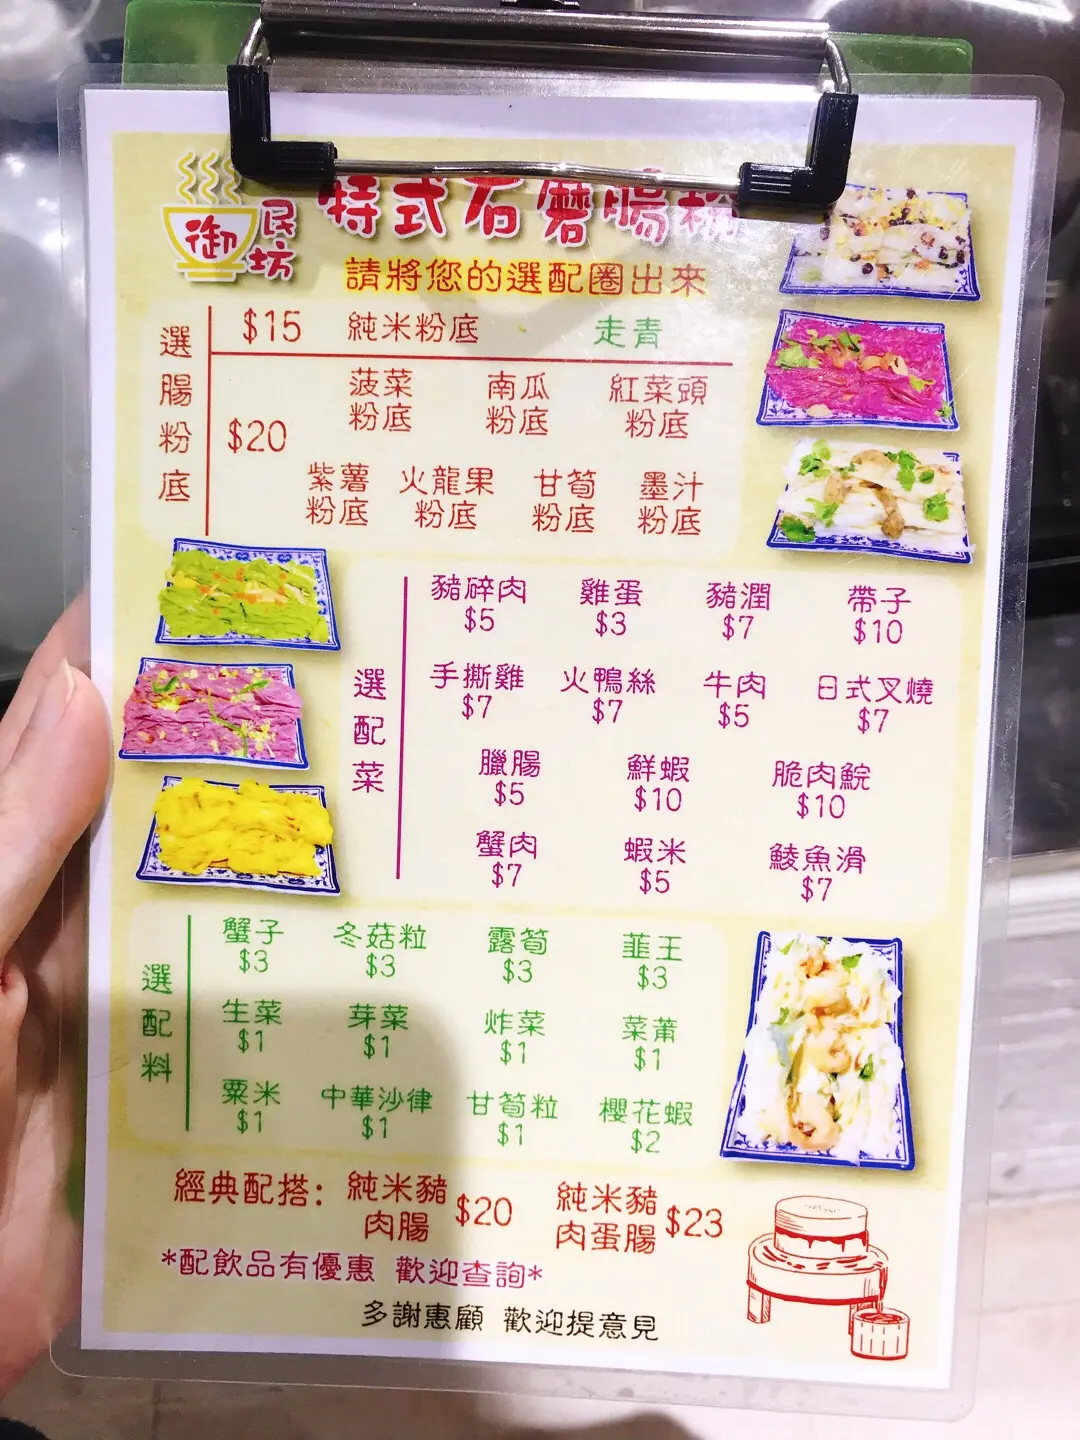 御民坊
特式石磨腸粉
請將您的選配圈出來
選腸粉底
$15 純米粉底 走青
$20
菠菜粉底 南瓜粉底 紅菜頭粉底
紫薯粉底 火龍果粉底 甘筍粉底 墨汁粉底
選配菜
豬碎肉 雞蛋 豬潤 帶子
$5 $3 $7 $10
手撕雞 火鴨絲 牛肉 日式叉燒
$7 $7 $5 $7
臘腸 鮮蝦 脆肉鯇
$5 $10 $10
蟹肉 蝦米 鯪魚滑
$7 $5 $7
選配料
蟹子 冬菇粒 露筍 韮王
$3 $3 $3 $3
生菜 芽菜 炸菜 菜莆
$1 $1 $1 $1
粟米 中華沙律 甘筍粒 櫻花蝦
$1 $1 $1 $2
經典配搭: 純米豬肉腸 $20 純米豬肉蛋腸 $23
*配飲品有優惠 歡迎查詢*
多謝惠顧 歡迎提意見